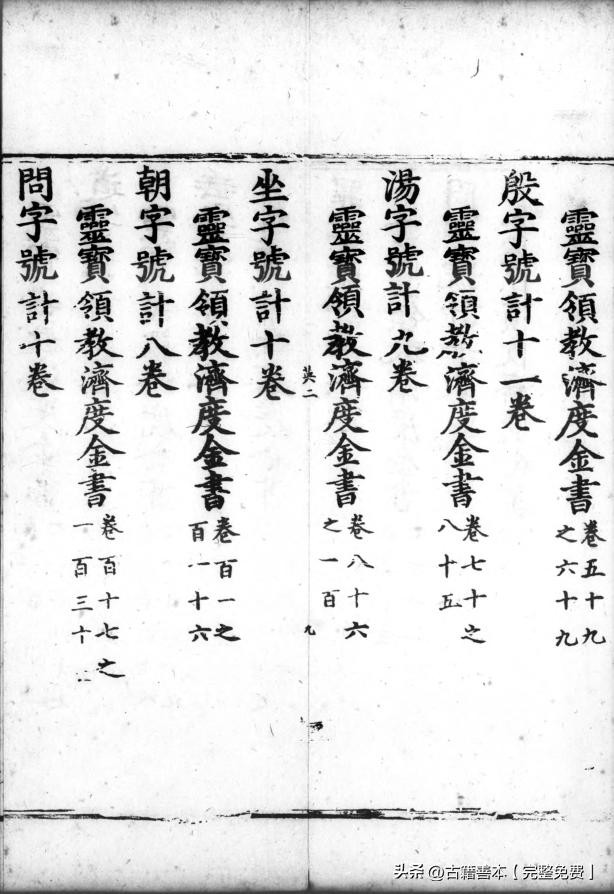 靈寶領教濟度金書
卷五十九
之六十九
殷字號計十一卷
靈寶領教濟度金書
卷七十之
八十五
湯字號計九卷
靈寶領教濟度金書
卷八十六
之一百
二
九
坐字號計十卷
靈寶領教濟度金書
卷百一之
百一十六
朝字號計八卷
靈寶領教濟度金書
卷百十七之
一百三十
問字號計十卷
头条 @古籍善本【完整免费】